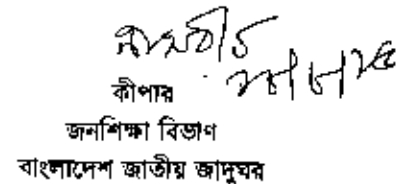 কীপার
জনশিক্ষা বিভাগ
বাংলাদেশ জাতীয় জাদুঘর